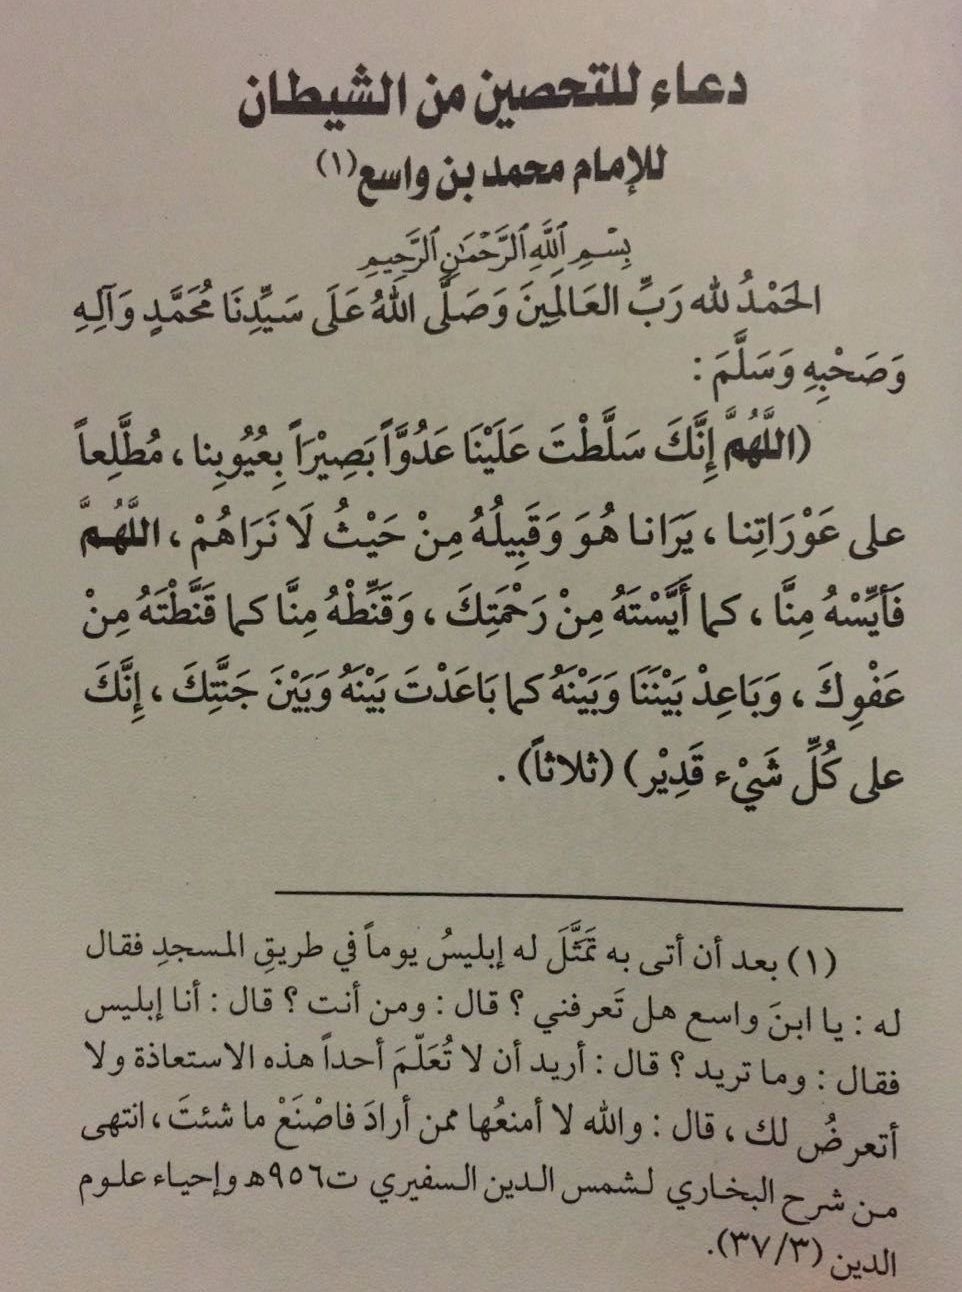 دعاء للتحصين من الشيطان
للإمام محمد بن واسع(١)
بِسْمِ ٱللَّهِ ٱلرَّحْمَٰنِ ٱلرَّحِيمِ
الحَمْدُ لله رَبِّ العَالمِينَ وَصَلَّى اللهُ عَلَى سَيِّدِنَا مُحَمَّدٍ وَآلِهِ
وَصَحْبِهِ وَسَلَّمَ :
(اللَّهُمَّ إِنَّكَ سَلَّطْتَ عَلَيْنَا عَدُوَّاً بَصِيْرَاً بِعُيُوبِنا ، مُطَّلِعاً
على عَوْرَاتِنا ، يَرَانا هُوَ وَقَبِيلُهُ مِنْ حَيْثُ لَا نَرَاهُمْ ، اللَّهُمَّ
فَأَيِّسْهُ مِنَّا ، كما أَيَّسْتَهُ مِنْ رَحْمَتِكَ ، وَقَنِّطْهُ مِنَّا كما قَنَّطْتَهُ مِنْ
عَفْوِكَ ، وَبَاعِدْ بَيْنَنَا وَبَيْنَهُ كما بَاعَدْتَ بَيْنَهُ وَبَيْنَ جَنَّتِكَ ، إِنَّكَ
على كُلِّ شَيْء قَدِيْر) (ثلاثاً) .
(١) بعد أن أتى به تمَثَّلَ له إبليسُ يوماً في طريقِ المسجدِ فقال
له : يا ابنَ واسع هل تَعرفني ؟ قال : ومن أنت ؟ قال : أنا إبليس
فقال : وما تريد ؟ قال : أريد أن لا تُعَلّمَ أحداً هذه الاستعاذة ولا
أتعرضُ لك ، قال : والله لا أمنعُها ممن أرادَ فاصْنَعْ ما شئتَ ، انتهى
من شرح البخاري لشمس الدين السفيري ت٩٥٦هـ وإحياء علوم
الدين (٣٧/٣).